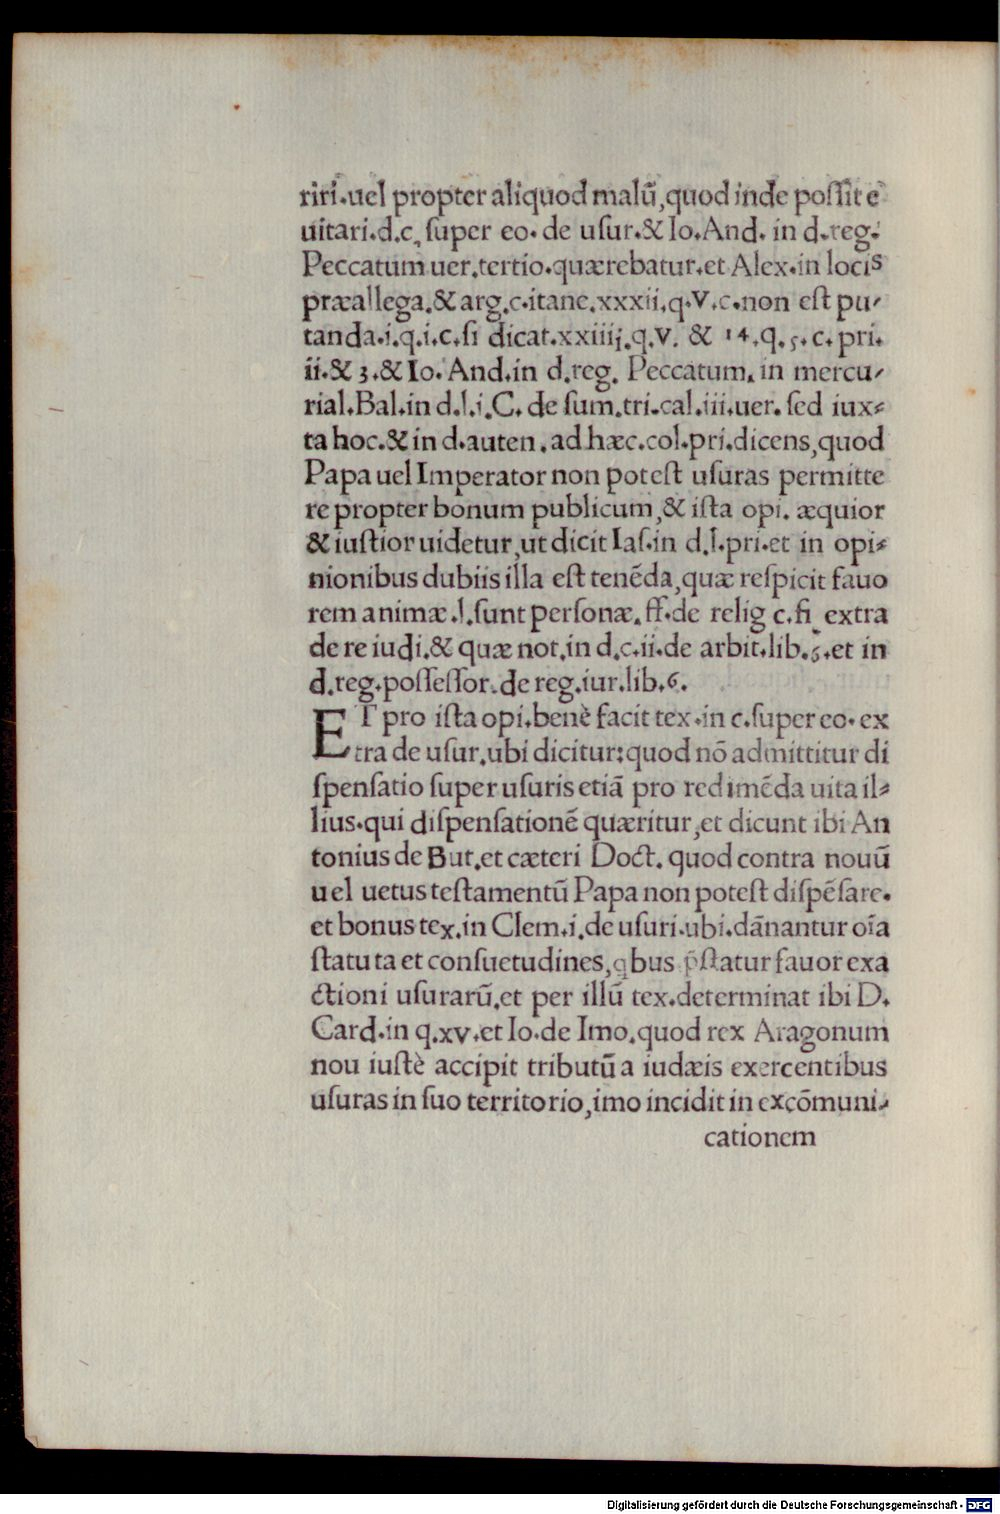 riri.uel propter aliquod malũ,quod inde poſſit e
uitari.d.c, ſuper eo. de uſur.& Io.And. in d.reg.
Peccatum uer.tertio.quærebatur.et Alex.in locis
præallega.& arg.c.itane.xxxii.q.V.c.non eſt pu-
tanda.i.q.i.c.ſi dicat.xxiiij.q.V. & 14.q.5.c.pri.
ii.& 3.& Io. And.in d.reg. Peccatum. in mercu-
rial.Bal.in d.l.i.C. de ſum.tri.cal.iii.uer. ſed iux-
ta hoc.& in d.auten.ad hæc.col.pri.dicens,quod
Papa uel Imperator non poteſt uſuras permitte
re propter bonum publicum,& iſta opi. æquior
& iuſtior uidetur,ut dicit Iaſ.in d.l.pri.et in opi-
nionibus dubiis illa eſt tenẽda,quæ reſpicit fauo
rem animæ.l.ſunt perſonæ.ff.de relig c.fi extra
de re iudi.& quæ not.in d.c.ii.de arbit.lib.5.et in
d.reg.poſſeſſor.de reg.iur.lib.6.
ET pro iſta opi.benè facit tex.in c.ſuper eo. ex
tra de uſur.ubi dicitur:quod nõ admittitur di
ſpenſatio ſuper uſuris etiã pro redimẽda uita il-
lius.qui diſpenſationẽ quæritur,et dicunt ibi An
tonius de But.et cæteri Doct. quod contra nouũ
uel uetus teſtamentũ Papa non poteſt diſpẽſare.
et bonus tex.in Clem.i.de uſuri.ubi.dãnantur oĩa
ſtatuta et conſuetudines,qbus p̃ſtatur fauor exa
ctioni uſurarũ.et per illũ tex.determinat ibi D.
Card.in q.xv.et Io.de Imo.quod rex Aragonum
nou iuſtè accipit tributũ a iudæis exercentibus
uſuras in ſuo territorio,imo incidit in excõmuni-
cationem
Digitalisierung gefördert durch die Deutsche Forschungsgemeinschaft - DFG